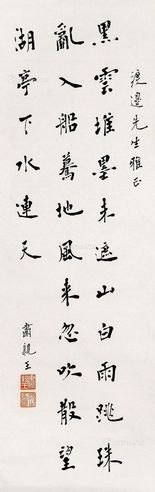 渡邊先生雅正
黑雲堆墨未遮山白雨跳珠
亂入船驀地風来忽吹散望
湖亭下水連天
肅親王